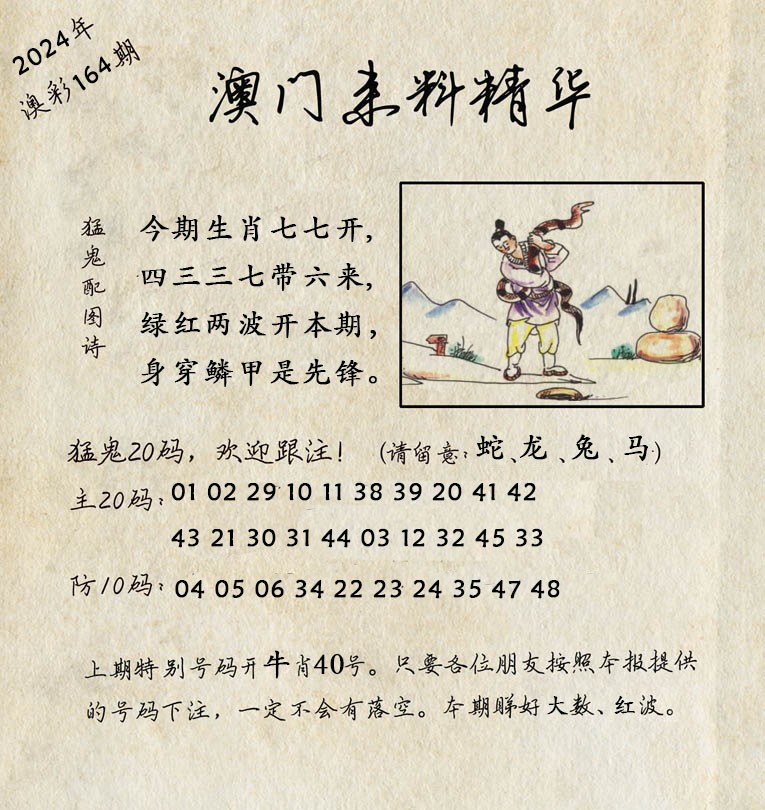 2024年
澳彩164期
澳门来料精华
猛鬼配图诗
今期生肖七七开,
四三三七带六来,
绿红两波开本期,
身穿鳞甲是先锋。
猛鬼20码，欢迎跟注！（请留意：蛇、龙、兔、马）
主20码：01 02 29 10 11 38 39 20 41 42
43 21 30 31 44 03 12 32 45 33
防10码：04 05 06 34 22 23 24 35 47 48
上期特别号码开牛肖40号。只要各位朋友按照本报提供
的号码下注，一定不会有落空。本期睇好大数、红波。